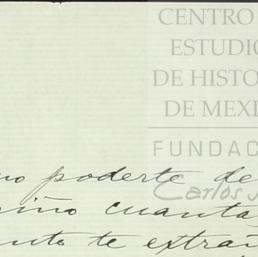 CENTRO
ESTUDIO
DE HISTO
DE MEXI
FUNDAC
no poderte de
Carlos S
niño cuanta
nto te extrañ